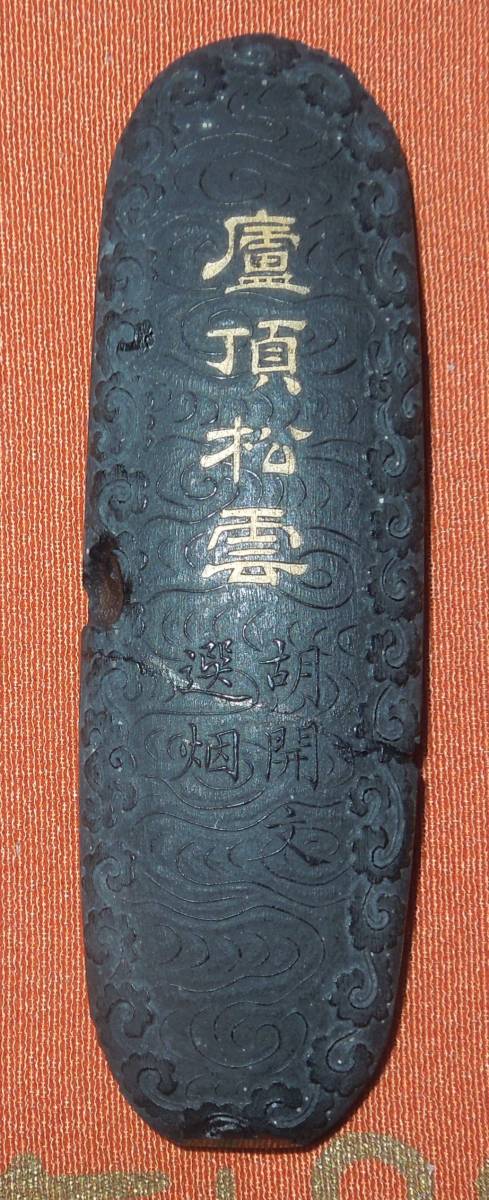 廬頂松雲
胡開文
選烟